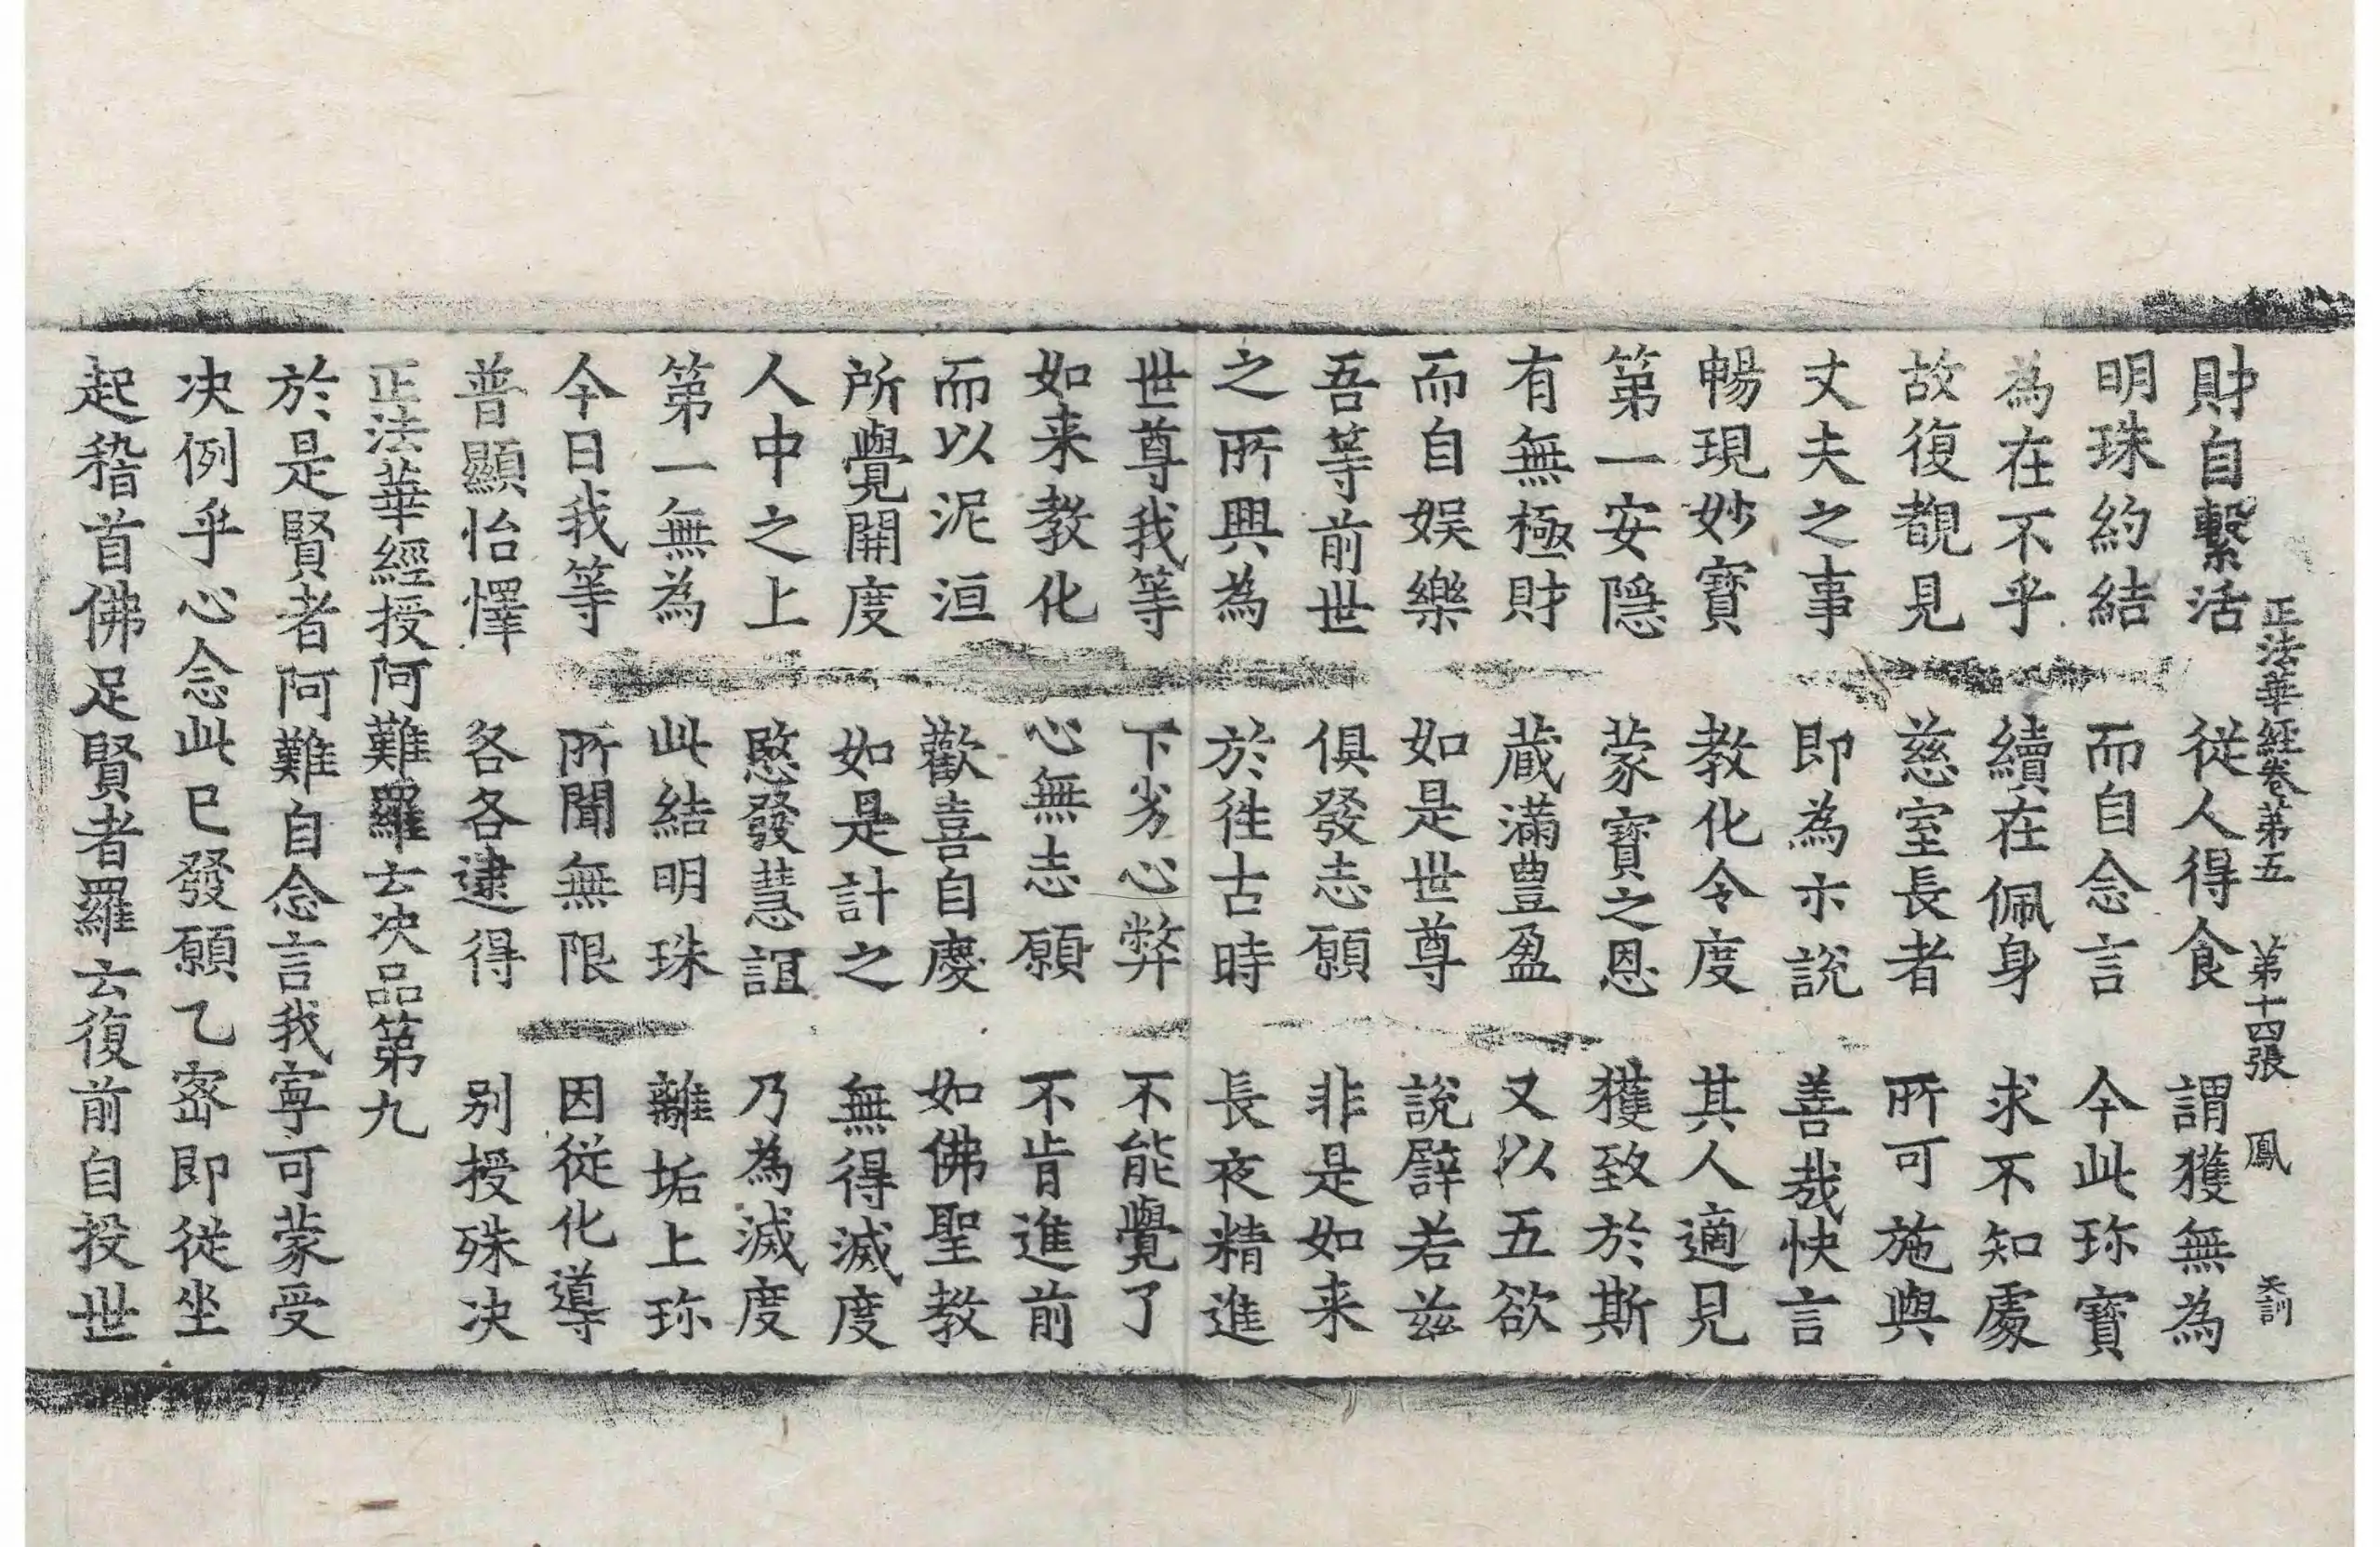 正法華經卷第五 第十四張 鳳 天訓
財自繫活 從人得食 謂獲無為
明珠約結 而自念言 今此珎寶
為在不乎 續在佩身 求不知處
故復覩見 慈室長者 所可施與
丈夫之事 即為示說 善哉快言
暢現妙寶 教化令度 其人適見
第一安隱 蒙寶之恩 獲致於斯
有無極財 蔵滿豊盈 又以五欲
而自娛樂 如是世尊 說譬若茲
吾等前世 俱發志願 非是如来
之所興為 於徃古時 長夜精進
世尊我等 下劣心弊 不能覺了
如来教化 心無志願 不肯進前
而以泥洹 歡喜自慶 如佛聖教
所覺開度 如是計之 無得滅度
人中之上 愍發慧誼 乃為滅度
第一無為 此結明珠 離垢上珎
今日我等 所聞無限 因從化導
普顯怡懌 各各逮得 別授殊决
正法華經授阿難羅云决品第九
於是賢者阿難自念言我寧可蒙受
决例乎心念此已發願乙密即從坐
起稽首佛足賢者羅云復前自投世